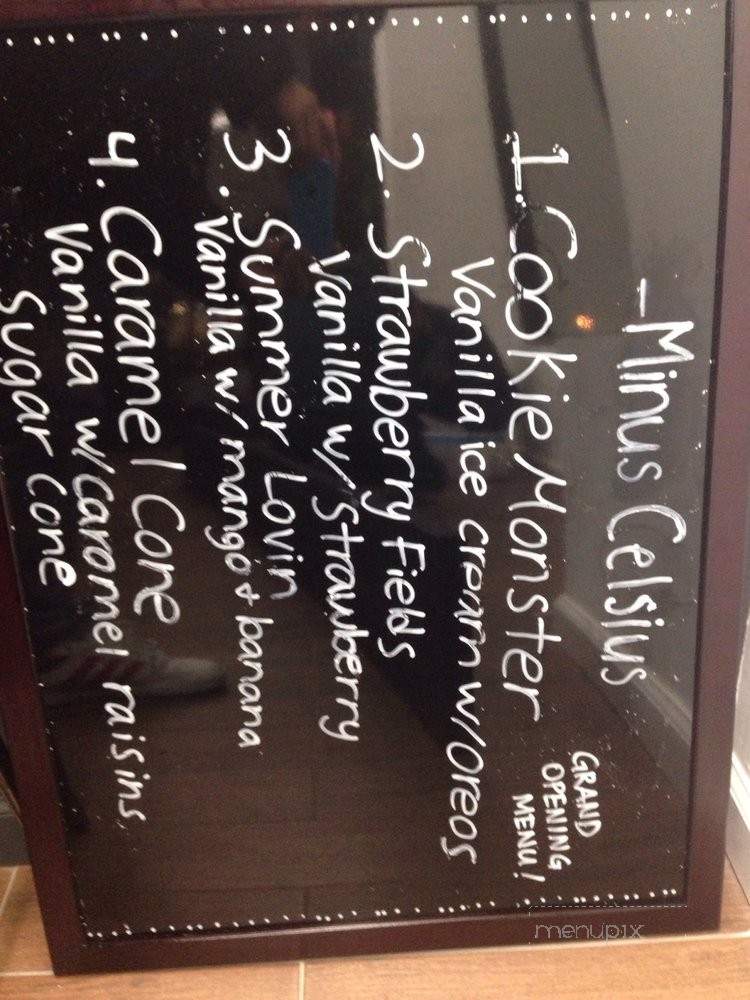 -Minus Celsius
GRAND
OPENING
MENU!
1. Cookie Monster
Vanilla ice cream w/oreos
2. Strawberry Fields
Vanilla w/ Strawberry
3. Summer Lovin
Vanilla w/ mango + banana
4. Caramel Cone
Vanilla w/caramel raisins,
Sugar cone
menupix